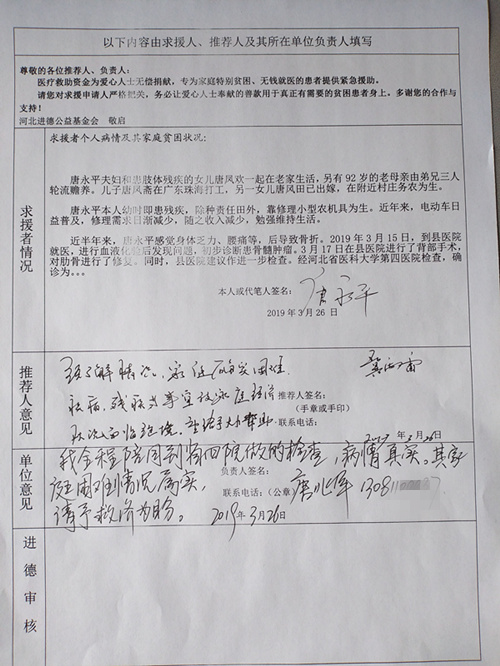 以下内容由求援人、推荐人及其所在单位负责人填写
尊敬的各位推荐人、负责人：
医疗救助资金为爱心人士无偿捐献，专为家庭特别贫困、无钱就医的患者提供紧急援助。
请您对求援申请人严格把关，务必让爱心人士奉献的善款用于真正有需要的贫困患者身上。多谢您的合作与
支持！
河北进德公益基金会 敬启
求援者情况
求援者个人病情及其家庭贫困状况：
唐永平夫妇和患肢体残疾的女儿唐凤欢一起在老家生活，另有 92 岁的老母亲由弟兄三人
轮流赡养。儿子唐凤斋在广东珠海打工，另一女儿唐凤田已出嫁，在附近村庄务农为生。
唐永平本人幼时即患残疾，除种责任田外，靠修理小型农机具为生。近年来，电动车日
益普及，修理需求日渐减少，随之收入减少，勉强维持生活。
近半年来，唐永平感觉身体乏力、腰痛等，后导致骨折。2019 年 3 月 15 日，到县医院
就医，进行血液化验后发现问题，初步诊断患骨髓肿瘤。3 月 17 日在县医院进行了背部手术，
对肋骨进行了修复。同时，县医院建议作进一步检查。经河北省医科大学第四医院检查，确
诊为。。。
本人或代笔人签名：唐永平
2019 年 3 月 26 日
推荐人意见
经了解情况，家庭确实困难
推荐人签名：
（手章或手印）
联系电话：
年 3 月 26 日
单位意见
我全程陪同到省四院做的检查，病情真实。其家
庭困难情况属实，
请予救济为盼。
负责人签名：
联系电话：（公章）
2019年3月26日
进德审核